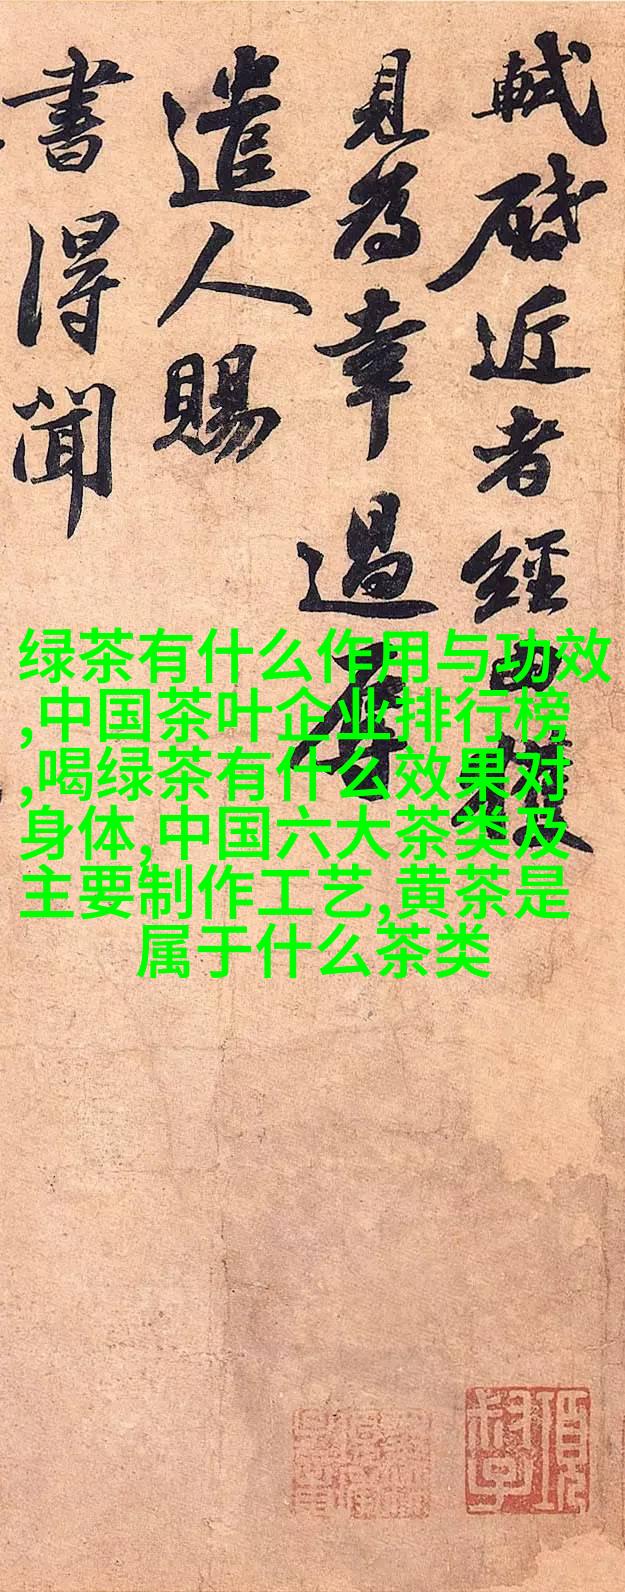 軾啟近者經由獲
見為幸過辱
遣人賜
書得聞
绿茶有什么作用与功效
,中国茶叶企业排行榜
,喝绿茶有什么效果对
身体,中国六大茶类及
主要制作工艺,黄茶是
属于什么茶类